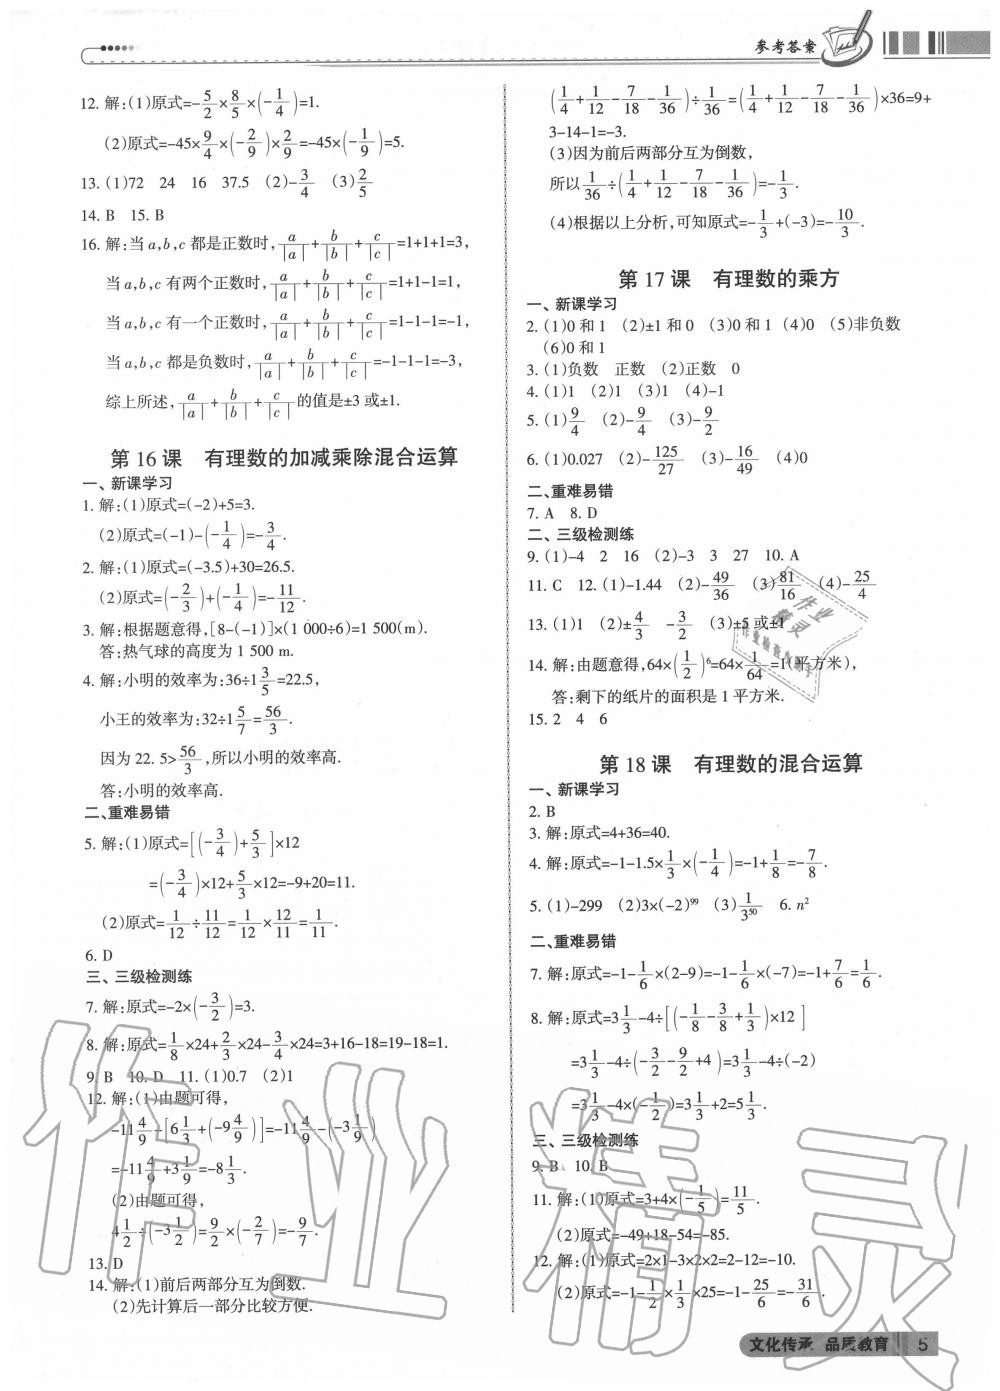 参考答案
12. 解:(1)原式=-5/2×8/5×(-1/4)=1.
(2)原式=-45×9/4×(-2/9)×2/9=-45×(-1/9)=5.
13. (1)72 24 16 37.5 (2)-3/4 (3)2/5
14. B 15. B
16. 解:当a,b,c 都是正数时,a/|a|+b/|b|+c/|c|=1+1+1=3,
当a,b,c 有两个正数时,a/|a|+b/|b|+c/|c|=1+1-1=1,
当a,b,c 有一个正数时,a/|a|+b/|b|+c/|c|=1-1-1=-1,
当a,b,c 都是负数时,a/|a|+b/|b|+c/|c|=-1-1-1=-3,
综上所述,a/|a|+b/|b|+c/|c|的值是±3 或±1.
第 16 课 有理数的加减乘除混合运算
一、新课学习
1. 解:(1)原式=(-2)+5=3.
(2)原式=(-1)-(-1/4)=-3/4.
2. 解:(1)原式=(-3.5)+30=26.5.
(2)原式=(-2/3)+(-1/4)=-11/12.
3. 解:根据题意得,[8-(-1)]×(1 000÷6)=1 500(m).
答:热气球的高度为 1 500 m.
4. 解:小明的效率为:36÷1 3/5=22.5,
小王的效率为:32÷1 5/7=56/3.
因为 22. 5>56/3,所以小明的效率高.
答:小明的效率高.
二、重难易错
5. 解:(1)原式=[(-3/4)+5/3]×12
=(-3/4)×12+5/3×12=-9+20=11.
(2)原式=1/12÷11/12=1/12×12/11=1/11.
6. D
三、三级检测练
7. 解:原式=-2×(-3/2)=3.
8. 解:原式=1/8×24+2/3×24-3/4×24=3+16-18=19-18=1.
9. B 10. D 11. (1)0.7 (2)1
12. 解:(1)由题可得,
-11 4/9-[6 1/3+(-9 4/9)]=-11 4/9-(-3 1/9)
=-11 4/9+3 1/9=-8 1/3.
(2)由题可得,
4 1/2÷(-3 1/2)=9/2×(-2/7)=-9/7.
13. D
14. 解:(1)前后两部分互为倒数.
(2)先计算后一部分比较方便.
(1/4+1/12-7/18-1/36)÷1/36=(1/4+1/12-7/18-1/36)×36=9+
3-14-1=-3.
(3)因为前后两部分互为倒数,
所以1/36÷(1/4+1/12-7/18-1/36)=-1/3.
(4)根据以上分析,可知原式=-1/3+(-3)=-10/3.
第 17 课 有理数的乘方
一、新课学习
2. (1)0 和 1 (2)±1 和 0 (3)0 和 1 (4)0 (5)非负数
(6)0 和 1
3. (1)负数 正数 (2)正数 0
4. (1)1 (2)1 (3)1 (4)-1
5. (1)9/4 (2)-9/4 (3)-9/2
6. (1)0.027 (2)-125/27 (3)-16/49 (4)0
二、重难易错
7. A 8. D
二、三级检测练
9. (1)-4 2 16 (2)-3 3 27 10. A
11. C 12. (1)-1.44 (2)-49/36 (3)81/16 (4)-25/4
13. (1)1 (2)±4/3 -3/2 (3)±5 或±1
14. 解:由题意得,64×(1/2)⁶=64×1/64=1(平方米),
答:剩下的纸片的面积是 1 平方米.
15. 2 4 6
第 18 课 有理数的混合运算
一、新课学习
2. B
3. 解:原式=4+36=40.
4. 解:原式=-1-1.5×1/3×(-1/4)=-1+1/8=-7/8.
5. (1)-299 (2)3×(-2)⁹⁹ (3)1/3⁵⁰ 6. n²
二、重难易错
7. 解:原式=-1-1/6×(2-9)=-1-1/6×(-7)=-1+7/6=1/6.
8. 解:原式=3 1/3-4÷[(-1/8-3/8+1/3)×12]
=3 1/3-4÷(-3/2-9/2+4)=3 1/3-4÷(-2)
=3 1/3-4×(-1/2)=3 1/3+2=5 1/3.
三、三级检测练
9. B 10. B
11. 解:(1)原式=3+4×(-1/5)=11/5.
(2)原式=-49+18-54=-85.
12. 解:(1)原式=2×1-3×2×2=2-12=-10.
(2)原式=-1-1/2×1/3×25=-1-25/6=-31/6.
作业精灵
文化传承 品质教育 5